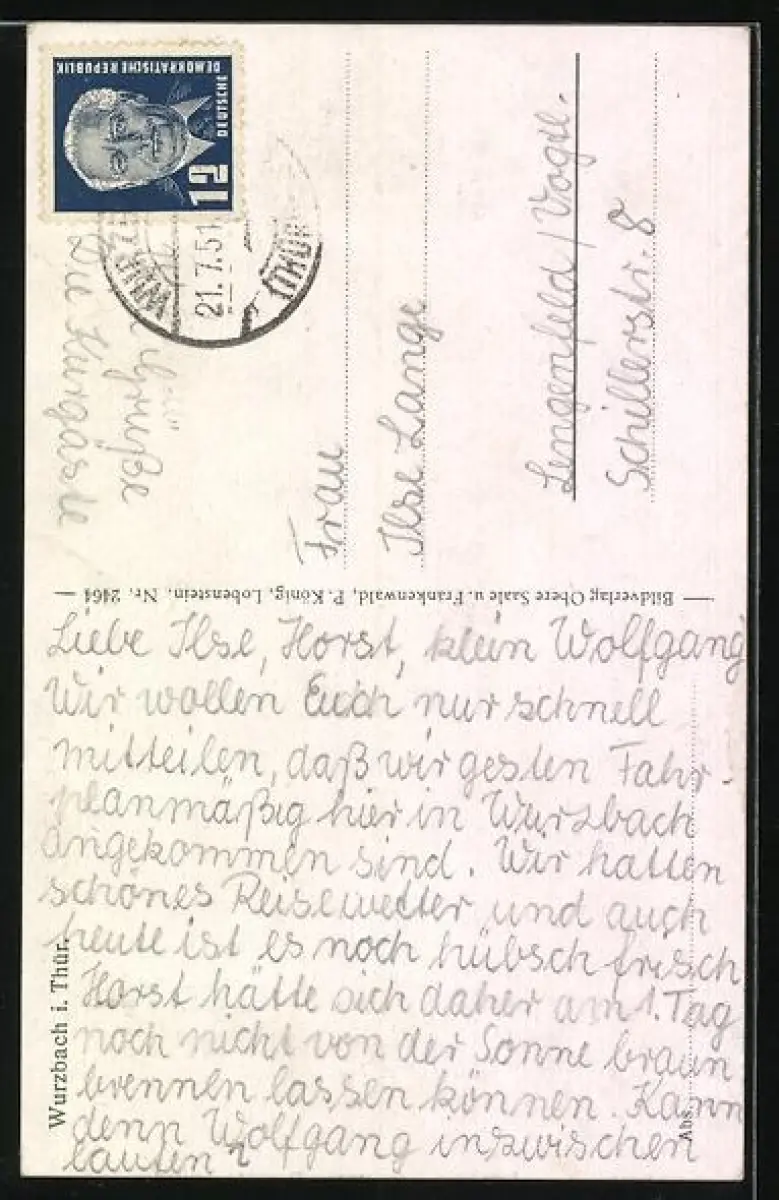 Liebe Ilse, Horst, klein Wolfgang
Wir wollen Euch nur schnell
mitteilen, daß wir gesten Fahr-
planmäßig hier in Wurzbach
angekommen sind. Wir hatten
schönes Reisewetter und auch
heute ist es noch hübsch frisch
Horst hätte sich daher am 1. Tag
noch nicht von der Sonne braun
brennen lassen können. Kann
denn Wolfgang inzwischen
laufen?
Grüße
Die Kurgäste
Wurzbach i. Thür.
Abs.
Bildverlag Obere Saale u. Frankenwald, P. König, Lobenstein. Nr. 2464
DEUTSCHE
DEMOKRATISCHE REPUBLIK
12
WURZ
21.7.51
(THÜR
Frau
Ilse Lange
Lengenfeld / Vogtl.
Schillerstr. 8